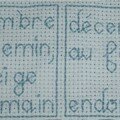 mbre
emin,
eige
main
décem
au f
b
endo